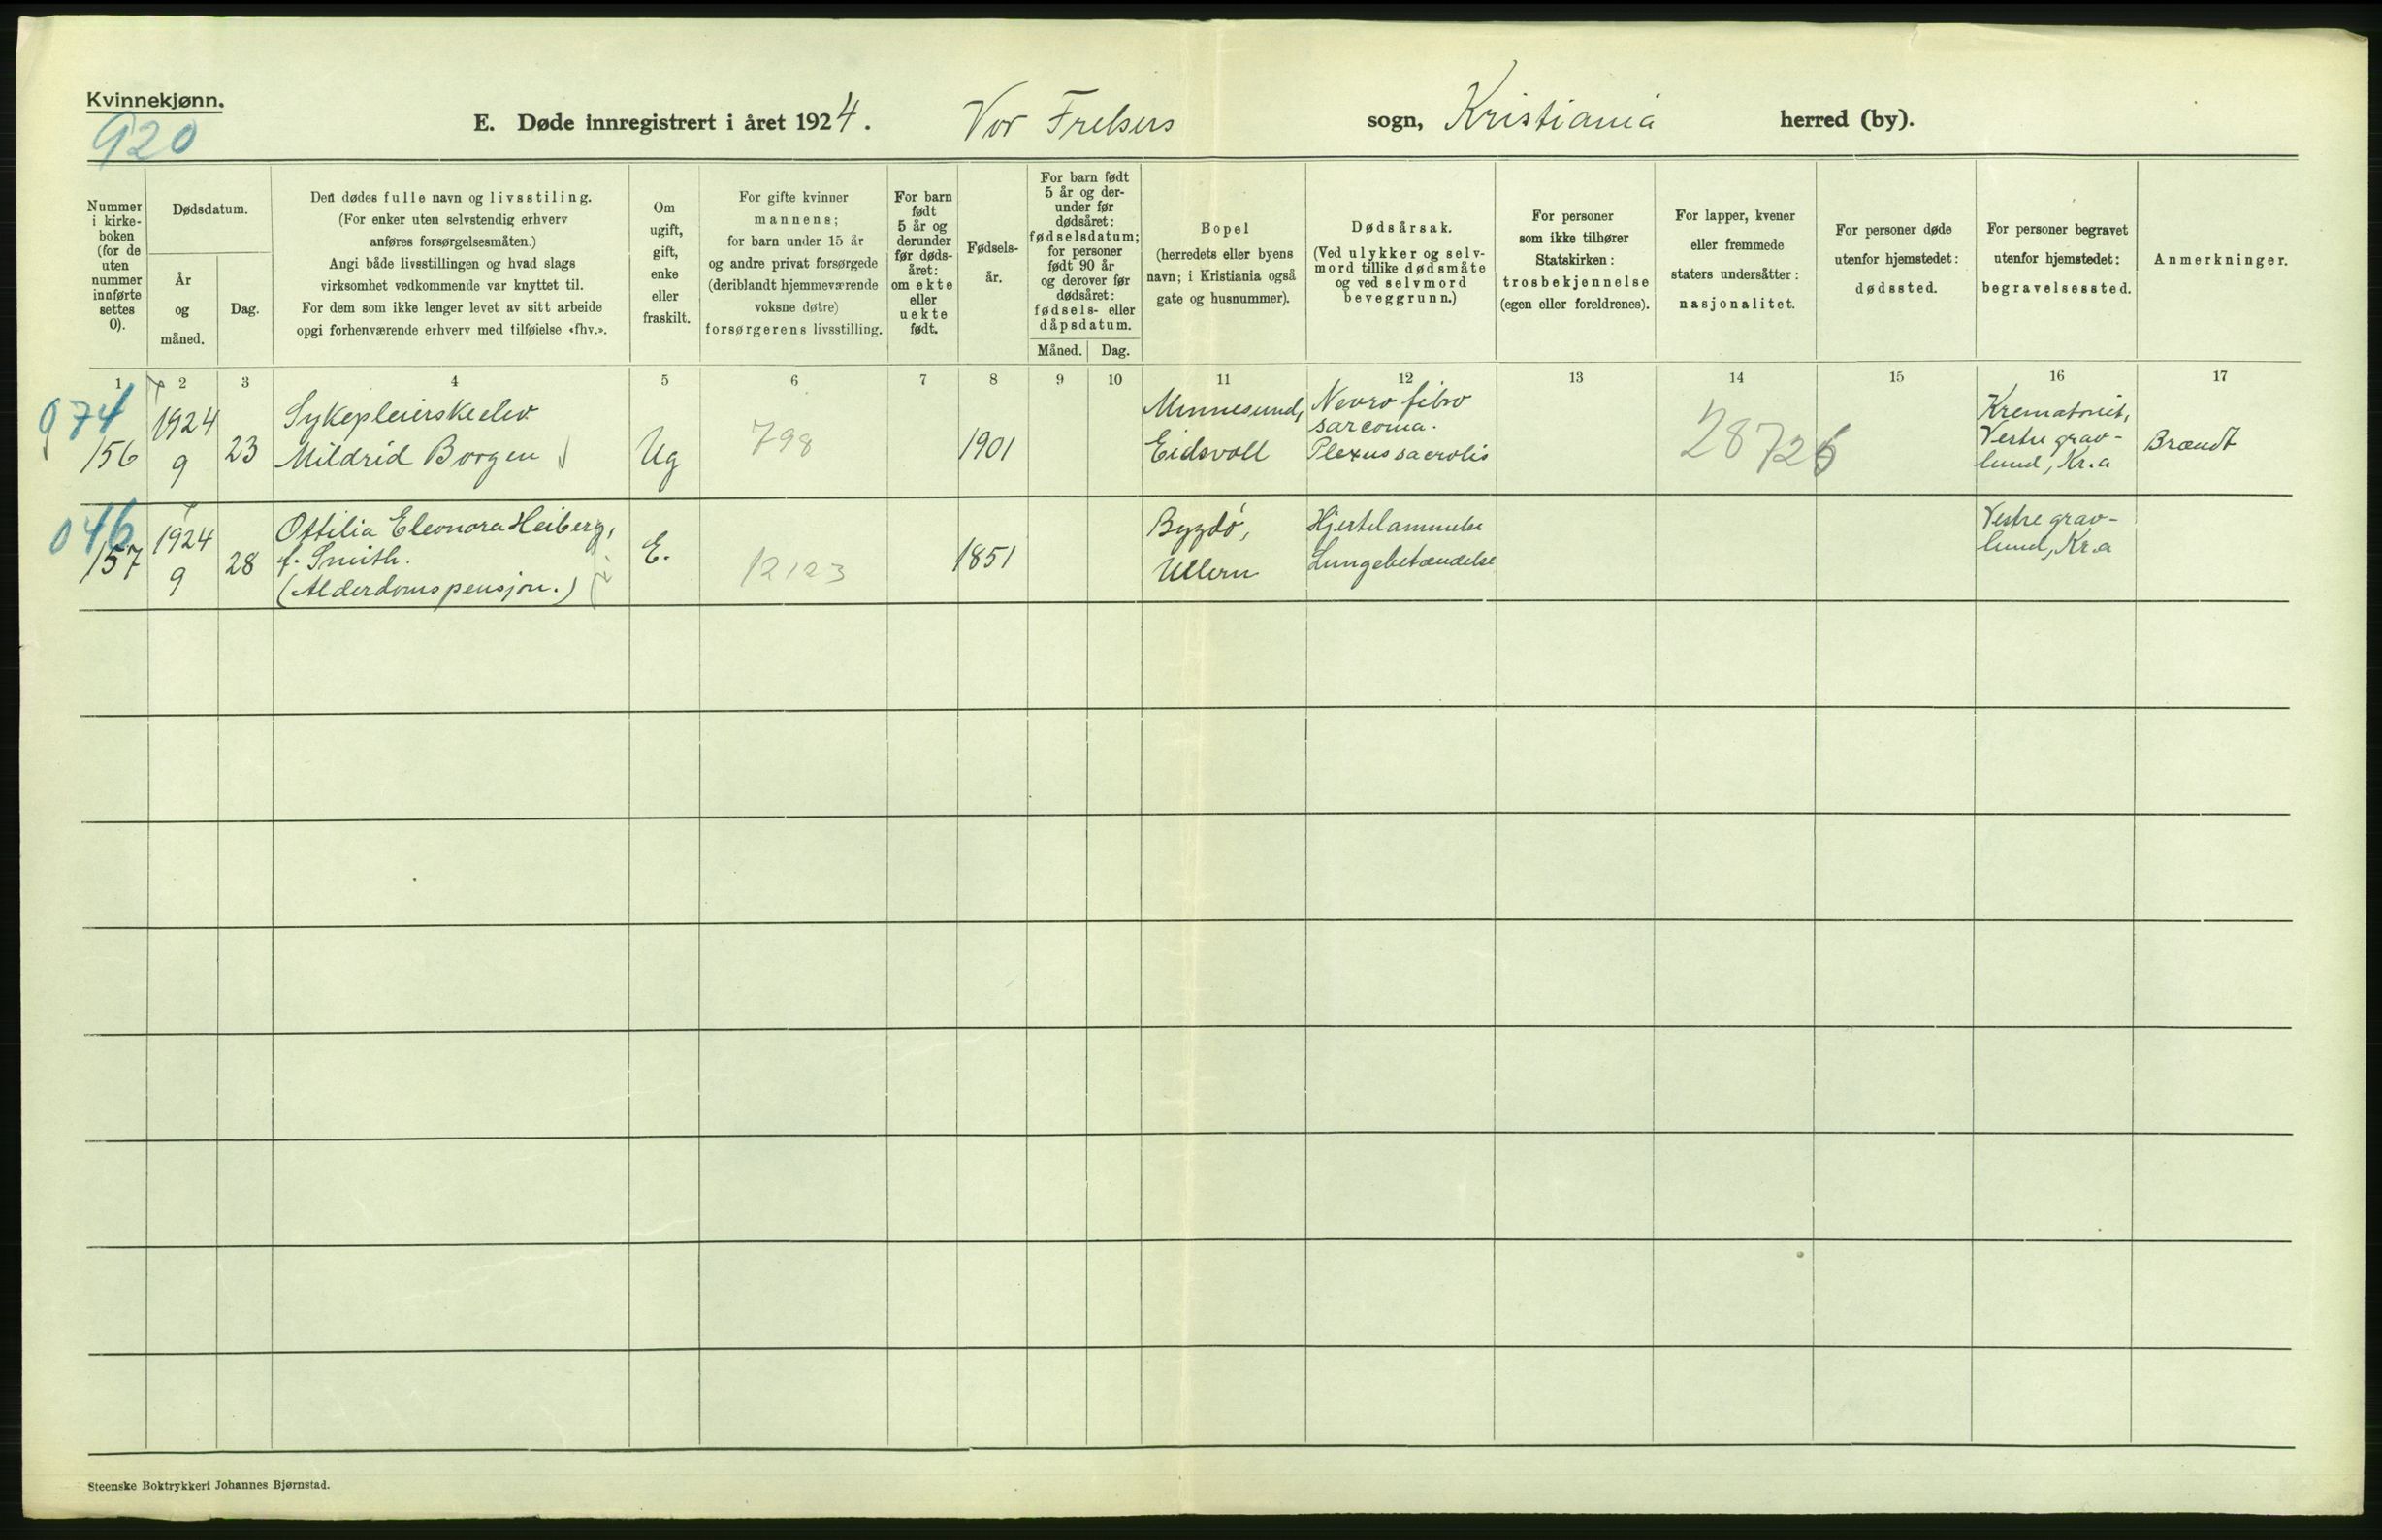 Kvinnekjønn.
920
E. Døde innregistrert i året 1924. Vor Frelsers sogn, Kristiania herred (by).
Nummer
i kirke-
boken
(for de
uten
nummer
innførte
settes
0).
Dødsdatum.
År
og
måned.
Dag.
Den dødes fulle navn og livsstiling.
(For enker uten selvstendig erhverv
anføres forsørgelsesmåten.)
Angi både livsstillingen og hvad slags
virksomhet vedkommende var knyttet til.
For dem som ikke lenger levet av sitt arbeide
opgi forhenværende erhverv med tilføielse «fhv.».
Om
ugift,
gift,
enke
eller
fraskilt.
For gifte kvinner
mannens;
for barn under 15 år
og andre privat forsørgede
(deriblandt hjemmeværende
voksne døtre)
forsørgerens livsstilling.
For barn
født
5 år og
derunder
før døds-
året:
om ekte
eller
uekte
født.
Fødsels-
år.
For barn født
5 år og der-
under før
dødsåret:
fødselsdatum;
for personer
født 90 år
og derover før
dødsåret:
fødsels- eller
dåpsdatum.
Måned. Dag.
Bopel
(herredets eller byens
navn; i Kristiania også
gate og husnummer).
Dødsårsak.
(Ved ulykker og selv-
mord tillike dødsmåte
og ved selvmord
beveggrunn.)
For personer
som ikke tilhører
Statskirken:
trosbekjennelse
(egen eller foreldrenes).
For lapper, kvener
eller fremmede
staters undersåtter:
nasjonalitet.
For personer døde
utenfor hjemstedet:
dødssted.
For personer begravet
utenfor hjemstedet:
begravelsessted.
Anmerkninger.
1 2 3 4 5 6 7 8 9 10 11 12 13 14 15 16 17
974
156
1924
9
23
Sykepleierskeelev
Mildrid Borgen
Ug
798
1901
Minnesund,
Eidsvoll
Nevro fibro
sarcoma.
Plexus sacrolis
28726
Krematoriet,
Vestre grav-
lund, Kr.a
Brandt
046
157
1924
9
28
Ottilia Eleonora Heiberg,
f. Smith.
(Alderdomspensjon.)
E.
12123
1851
Bygdö,
Ullern
Hjertelammelse
Lungebetændelse
Vestre grav-
lund, Kr.a
Steenske Boktrykkeri Johannes Bjørnstad.